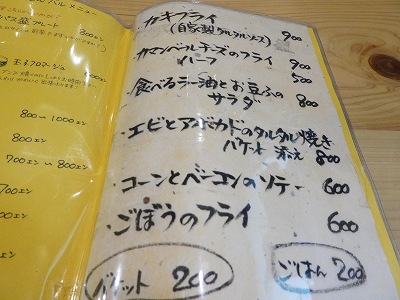 メニュー
プレート
800エン
800〜1000エン
800エン
700〜800エン
700エン
・カキフライ 900
(自家製タルタルソース)
・カマンベールチーズのフライ 900
ハーフ 500
・食べるラー油とお豆ふの
サラダ 800
・エビとアボカドのタルタル焼き
バケット添え 800
・コーンとベーコンのソテー 600
・ごぼうのフライ 600
バケット 200
ごはん 200